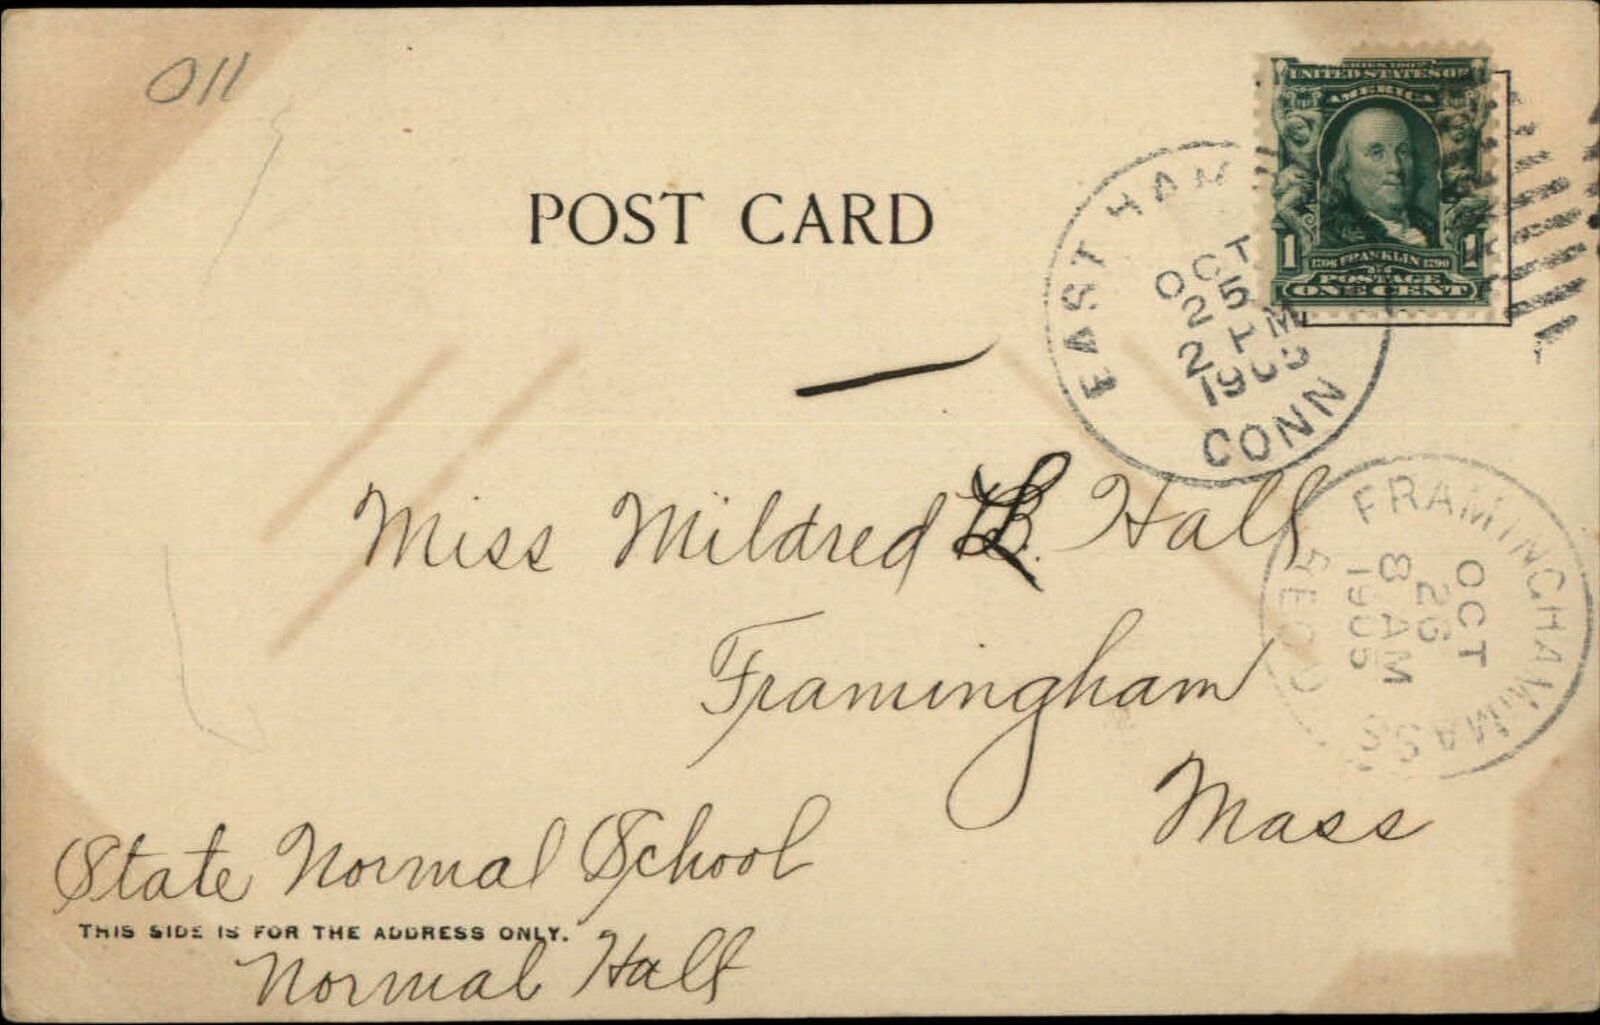 011
POST CARD
SERIES 1902
UNITED STATES OF
AMERICA
1 1
1706 FRANKLIN 1790
POSTAGE
ONE CENT
EAST HAM
OCT
25
2 PM
1905
CONN
Miss Mildred B. Hall
FRAMINGHAM, MASS.
OCT
26
8 AM
1905
REC'D
Framingham
Mass
State Normal School
THIS SIDE IS FOR THE ADDRESS ONLY.
Normal Hall